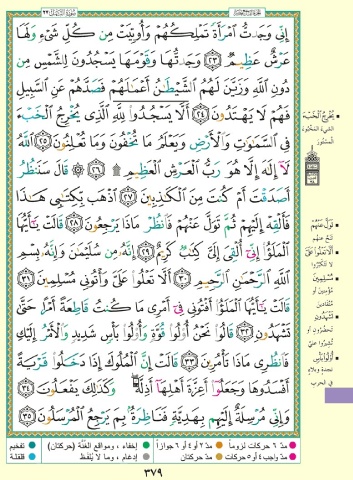 إِنِّى وَجَدتُّ ٱمْرَأَةً تَمْلِكُهُمْ وَأُوتِيَتْ مِن كُلِّ شَىْءٍ وَلَهَا
عَرْشٌ عَظِيمٌ ٢٣ وَجَدتُّهَا وَقَوْمَهَا يَسْجُدُونَ لِلشَّمْسِ مِن
دُونِ ٱللَّهِ وَزَيَّنَ لَهُمُ ٱلشَّيْطَٰنُ أَعْمَٰلَهُمْ فَصَدَّهُمْ عَنِ ٱلسَّبِيلِ
فَهُمْ لَا يَهْتَدُونَ ٢٤ أَلَّا يَسْجُدُوا۟ لِلَّهِ ٱلَّذِى يُخْرِجُ ٱلْخَبْءَ
فِى ٱلسَّمَٰوَٰتِ وَٱلْأَرْضِ وَيَعْلَمُ مَا تُخْفُونَ وَمَا تُعْلِنُونَ ٢٥ ٱللَّهُ
لَآ إِلَٰهَ إِلَّا هُوَ رَبُّ ٱلْعَرْشِ ٱلْعَظِيمِ ۩ ٢٦ قَالَ سَنَنظُرُ
أَصَدَقْتَ أَمْ كُنتَ مِنَ ٱلْكَٰذِبِينَ ٢٧ ٱذْهَب بِّكِتَٰبِى هَٰذَا
فَأَلْقِهْ إِلَيْهِمْ ثُمَّ تَوَلَّ عَنْهُمْ فَٱنظُرْ مَاذَا يَرْجِعُونَ ٢٨ قَالَتْ يَٰٓأَيُّهَا
ٱلْمَلَؤُا۟ إِنِّىٓ أُلْقِىَ إِلَىَّ كِتَٰبٌ كَرِيمٌ ٢٩ إِنَّهُۥ مِن سُلَيْمَٰنَ وَإِنَّهُۥ بِسْمِ
ٱللَّهِ ٱلرَّحْمَٰنِ ٱلرَّحِيمِ ٣٠ أَلَّا تَعْلُوا۟ عَلَىَّ وَأْتُونِى مُسْلِمِينَ ٣١
قَالَتْ يَٰٓأَيُّهَا ٱلْمَلَؤُا۟ أَفْتُونِى فِىٓ أَمْرِى مَا كُنتُ قَاطِعَةً أَمْرًا حَتَّىٰ
تَشْهَدُونِ ٣٢ قَالُوا۟ نَحْنُ أُو۟لُوا۟ قُوَّةٍ وَأُو۟لُوا۟ بَأْسٍ شَدِيدٍ وَٱلْأَمْرُ إِلَيْكِ
فَٱنظُرِى مَاذَا تَأْمُرِينَ ٣٣ قَالَتْ إِنَّ ٱلْمُلُوكَ إِذَا دَخَلُوا۟ قَرْيَةً
أَفْسَدُوهَا وَجَعَلُوٓا۟ أَعِزَّةَ أَهْلِهَآ أَذِلَّةً ۖ وَكَذَٰلِكَ يَفْعَلُونَ ٣٤
وَإِنِّى مُرْسِلَةٌ إِلَيْهِم بِهَدِيَّةٍ فَنَاظِرَةٌۢ بِمَ يَرْجِعُ ٱلْمُرْسَلُونَ ٣٥
يُخْرِجُ الْخَبْءَ
الشيء المخبوء
المستور
تَوَلَّ عَنْهُمْ
تنح عنهم
أَلَّا تَعْلُوا عَلَيَّ
لا تتكبروا
مُسْلِمِينَ
مؤمنين أو
منقادين
تَشْهَدُونِ
تحضرون أو
تشيروا علي
أُولُوا بَأْسٍ
نجدة وبلاء
في الحرب
مدّ ٦ حركات لزوماً مدّ ٢ أو ٤ أو ٦ جوازاً إخفاء، ومواقع الغنّة (حركتان) تفخيم
مدّ واجب ٤ أو ٥ حركات مدّ حركتان إدغام، وما لا يُلفظ قلقلة
٣٧٩